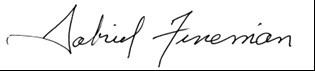 Gabriel Fineman